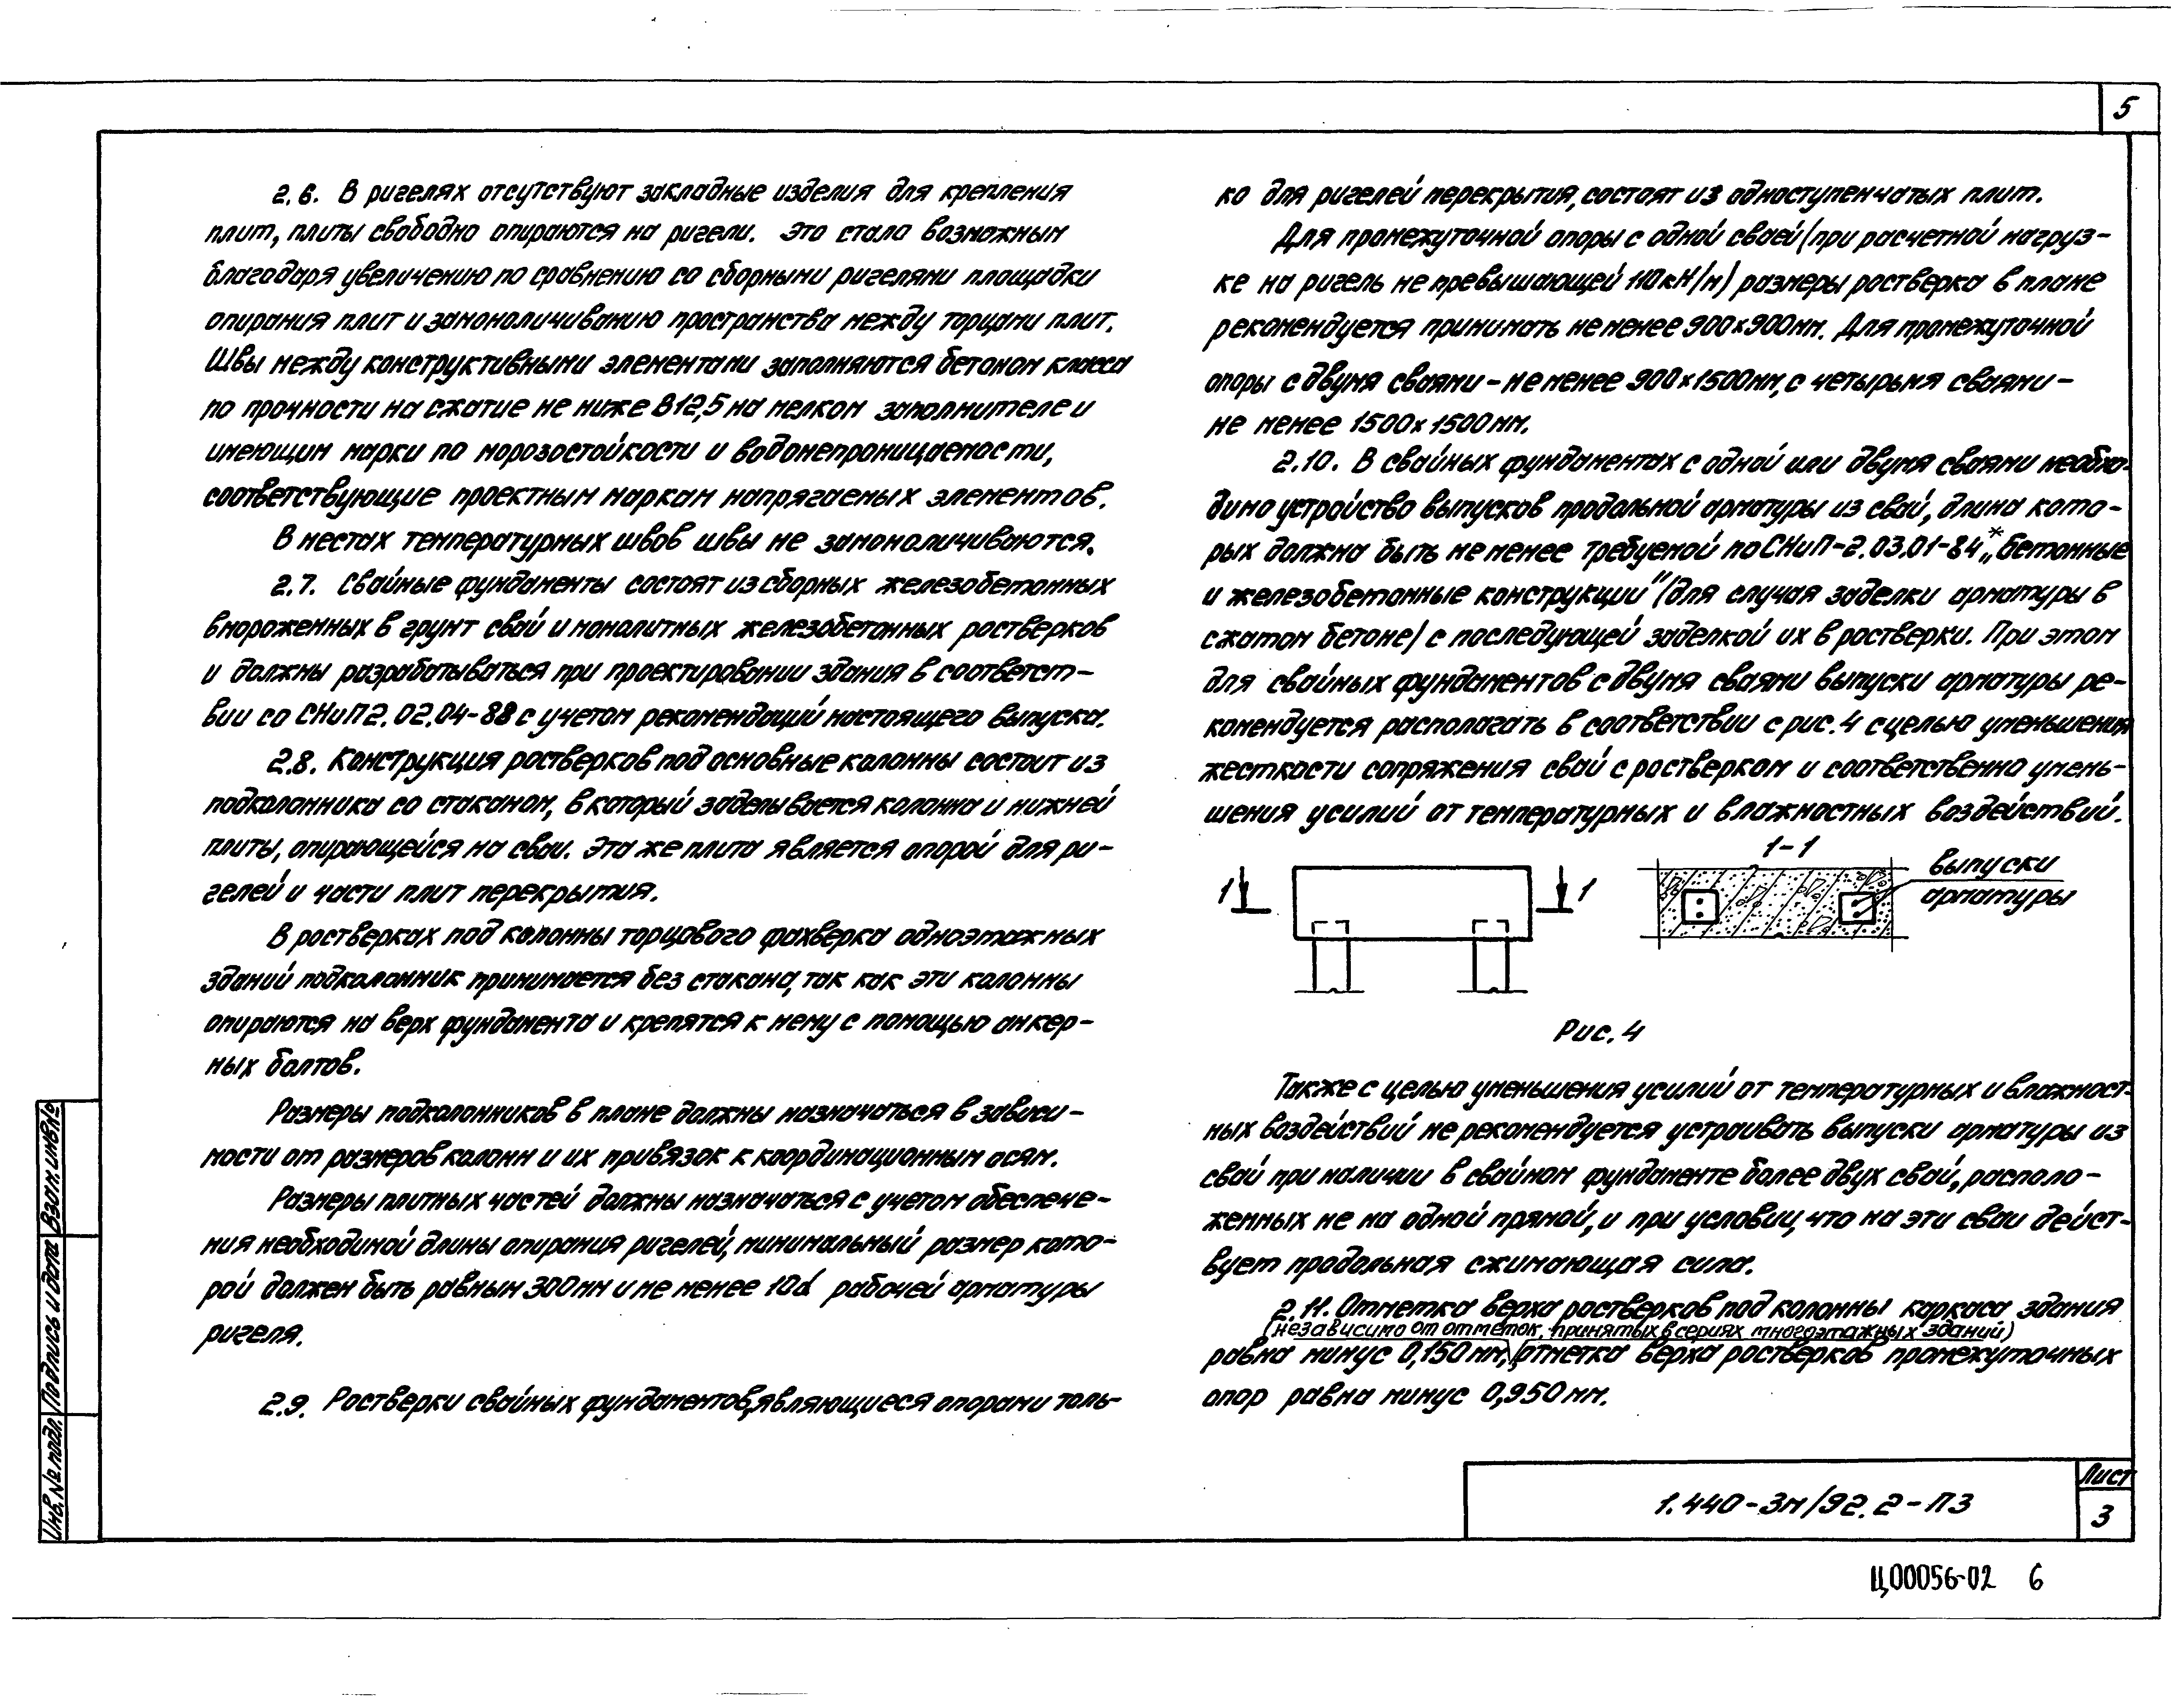 5
2.6. В ригелях отсутствуют закладные изделия для крепления
плит, плиты свободно опираются на ригели. Это стало возможным
благодаря увеличению по сравнению со сборными ригелями площадки
опирания плит и замоноличиванию пространства между торцами плит.
Швы между конструктивными элементами заполняются бетоном класса
по прочности на сжатие не ниже В12,5 на мелком заполнителе и
имеющим марки по морозостойкости и водонепроницаемости,
соответствующие проектным маркам напрягаемых элементов.
В местах температурных швов швы не замоноличиваются.
2.7. Свайные фундаменты состоят из сборных железобетонных
вмороженных в грунт свай и монолитных железобетонных ростверков
и должны разрабатываться при проектировании здания в соответст-
вии со СНиП 2.02.04-88 с учетом рекомендаций настоящего выпуска.
2.8. Конструкция ростверков под основные колонны состоит из
подколонника со стаканом, в который заделывается колонна и нижней
плиты, опирающейся на сваи. Эта же плита является опорой для ри-
гелей и части плит перекрытия.
В ростверках под колонны торцового фахверка одноэтажных
зданий подколонник принимается без стакана, так как эти колонны
опираются на верх фундамента и крепятся к нему с помощью анкер-
ных болтов.
Размеры подколонников в плане должны назначаться в зависи-
мости от размеров колонн и их привязок к координационным осям.
Размеры плитных частей должны назначаться с учетом обеспече-
ния необходимой длины опирания ригелей, минимальный размер кото-
рой должен быть равным 300мм и не менее 10d рабочей арматуры
ригеля.
2.9. Ростверки свайных фундаментов, являющиеся опорами толь-
ко для ригелей перекрытия, состоят из одноступенчатых плит.
Для промежуточной опоры с одной сваей (при расчетной нагруз-
ке на ригель не превышающей 110кН/м) размеры ростверка в плане
рекомендуется принимать не менее 900×900мм. Для промежуточной
опоры с двумя сваями - не менее 900×1500мм, с четырьмя сваями -
не менее 1500×1500мм.
2.10. В свайных фундаментах с одной или двумя сваями необхо-
димо устройство выпусков продольной арматуры из свай, длина кото-
рых должна быть не менее требуемой по СНиП-2.03.01-84* „Бетонные
и железобетонные конструкции" (для случая заделки арматуры в
сжатом бетоне) с последующей заделкой их в ростверки. При этом
для свайных фундаментов с двумя сваями выпуски арматуры ре-
комендуется располагать в соответствии с рис.4 с целью уменьшения
жесткости сопряжения свай с ростверком и соответственно умень-
шения усилий от температурных и влажностных воздействий.
1 1
1-1
выпуски
арматуры
Рис. 4
Также с целью уменьшения усилий от температурных и влажност-
ных воздействий не рекомендуется устраивать выпуски арматуры из
свай при наличии в свайном фундаменте более двух свай, располо-
женных не на одной прямой, и при условии, что на эти сваи дейст-
вует продольная сжимающая сила.
2.11. Отметка верха ростверков под колонны каркаса здания
(независимо от отметок, принятых в сериях многоэтажных зданий)
равна минус 0,150мм, отметка верха ростверков промежуточных
опор равна минус 0,950мм.
Инв. № подл. Подпись и дата Взам. инв. №
1.440-3м/92.2-ПЗ
Лист
3
Ц00056-02 6